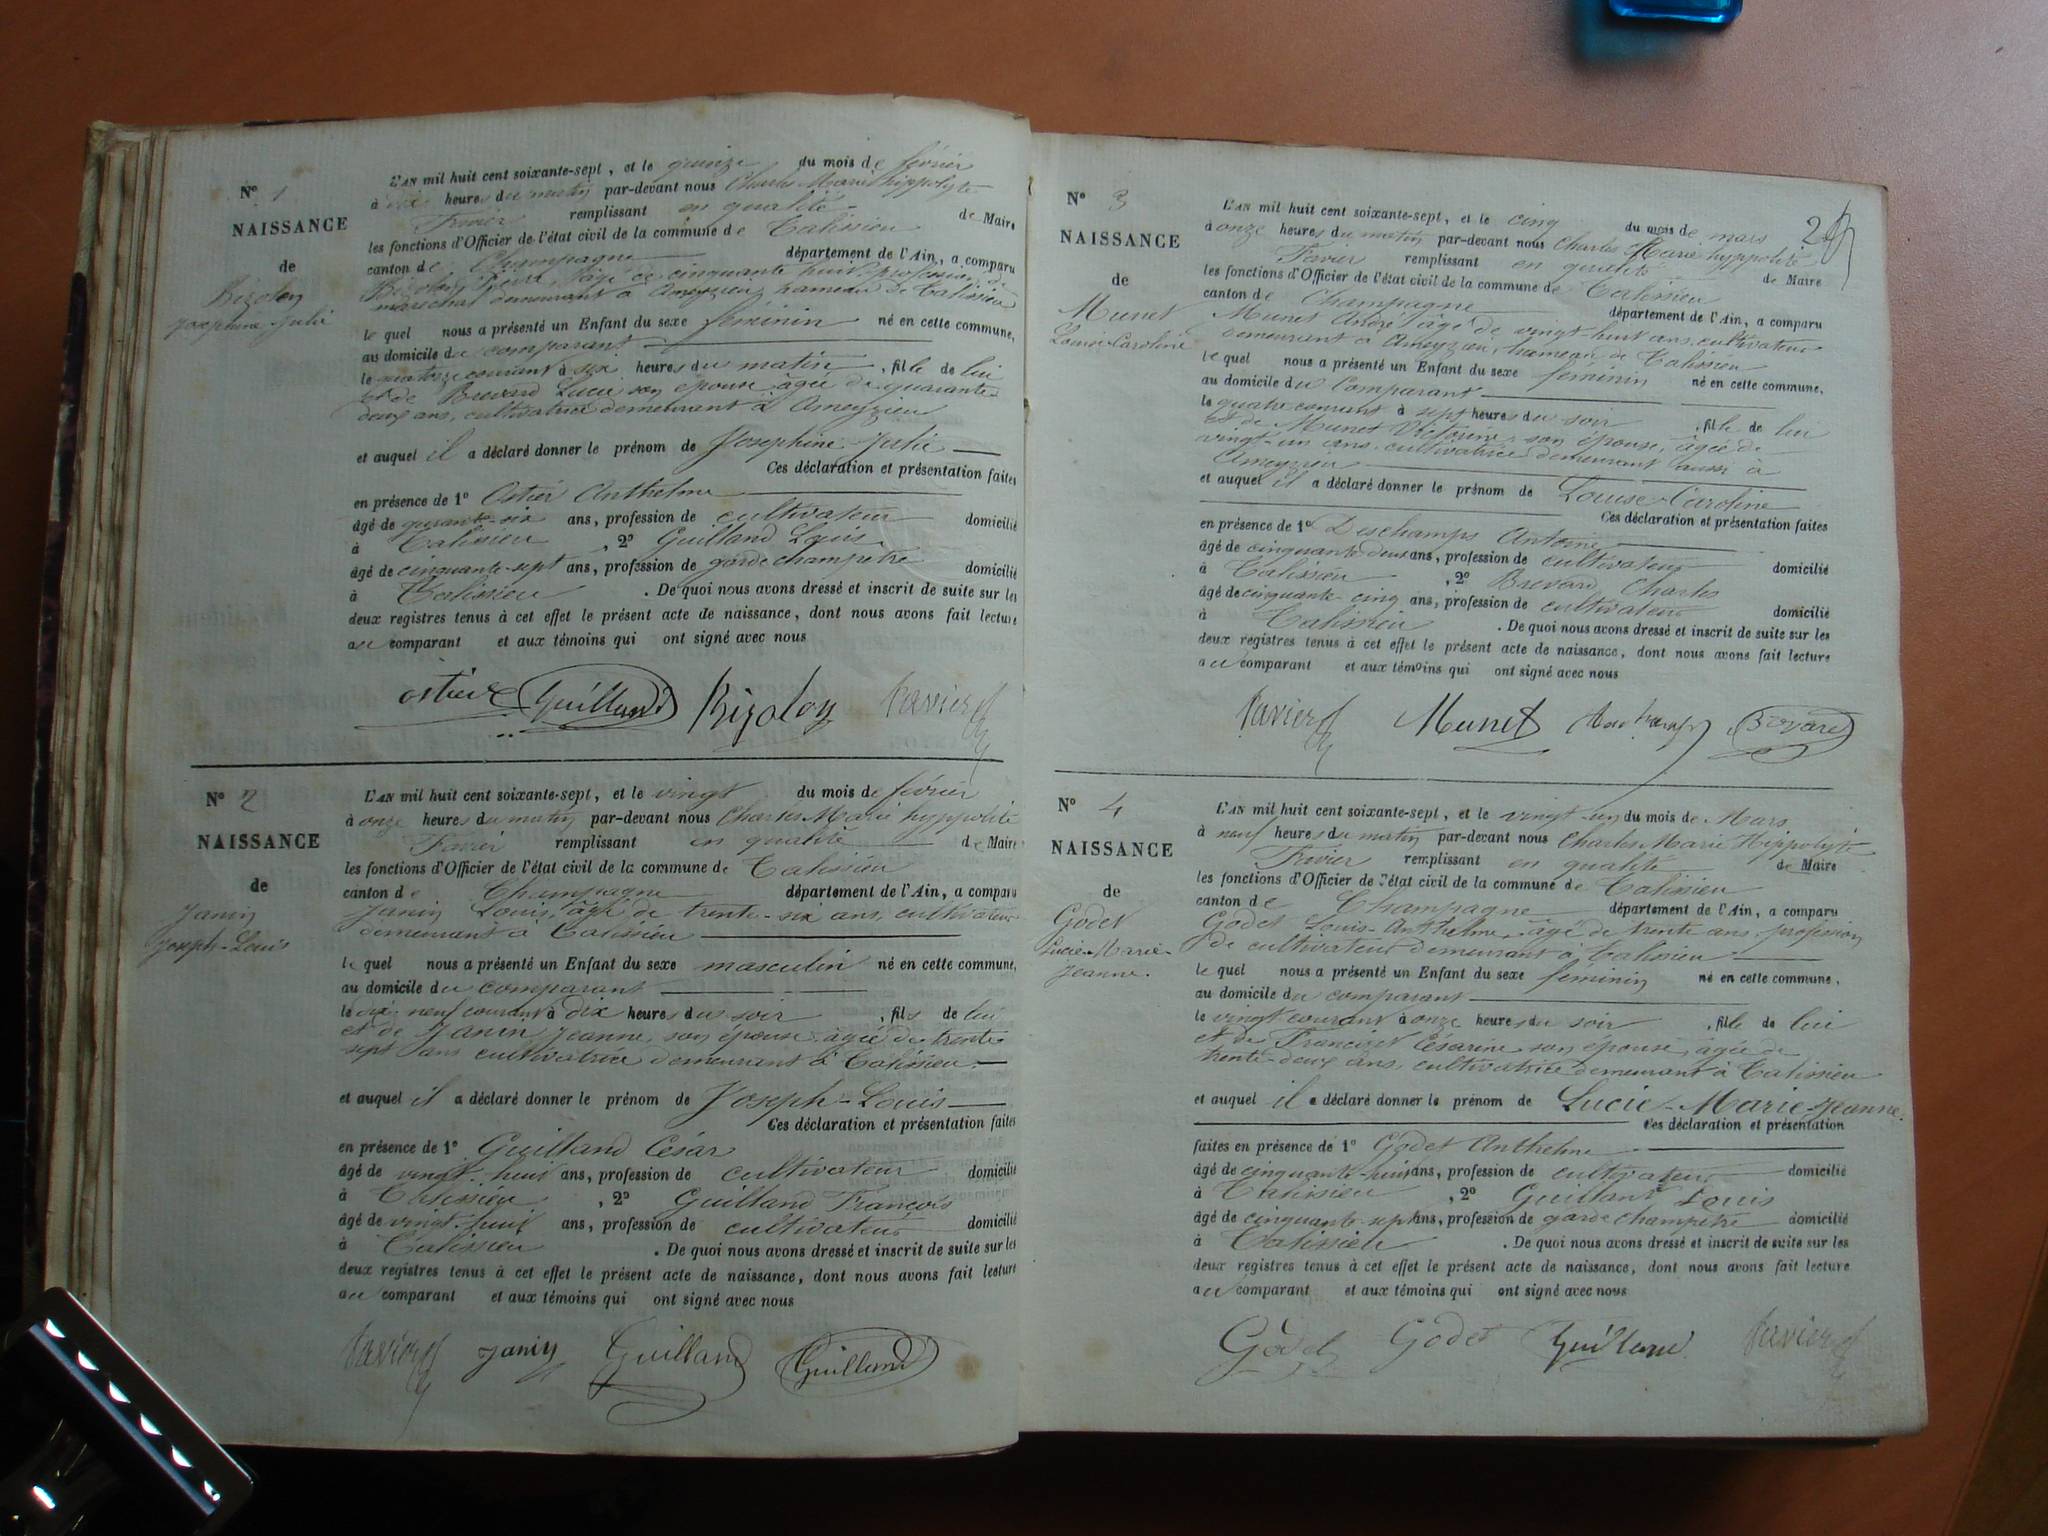 N° 1
NAISSANCE
de
Bizolon
Josephine-Julie
L'AN mil huit cent soixante-sept, et le quinze du mois de février
à dix heures du matin par-devant nous Charles Marie hippolyte
Favier remplissant en qualité de Maire
les fonctions d'Officier de l'état civil de la commune de Talissieu
canton de Champagne département de l'Ain, a comparu
Bizolon Pierre, âgé de cinquante huit, profession de
maréchal demeurant à Ameyzieu, hameau de Talissieu
le quel nous a présenté un Enfant du sexe féminin né en cette commune,
au domicile du comparant
le quatorze courant à six heures du matin, fille de lui
et de Brevard Lucie son épouse âgée de quarante
deux ans, cultivatrice demeurant à Ameyzieu
et auquel il a déclaré donner le prénom de Josephine-Julie
Ces déclaration et présentation faites
en présence de 1° Ostier Anthelme
âgé de quarante-six ans, profession de cultivateur domicilié
à Talissieu, 2° Guilland Louis
âgé de cinquante-sept ans, profession de garde champêtre domicilié
à Talissieu. De quoi nous avons dressé et inscrit de suite sur les
deux registres tenus à cet effet le présent acte de naissance, dont nous avons fait lecture
au comparant et aux témoins qui ont signé avec nous
ostier Guilland Bizolon Favier
N° 2
NAISSANCE
de
Janin
Joseph-Louis
L'AN mil huit cent soixante-sept, et le vingt du mois de février
à onze heures du matin par-devant nous Charles Marie hyppolite
Favier remplissant en qualité de Maire
les fonctions d'Officier de l'état civil de la commune de Talissieu
canton de Champagne département de l'Ain, a comparu
Janin Louis, âgé de trente-six ans, cultivateur
demeurant à Talissieu
le quel nous a présenté un Enfant du sexe masculin né en cette commune,
au domicile du comparant
le dix-neuf courant à dix heures du soir, fils de lui
et de Janin Jeanne, son épouse, âgée de trente
sept ans cultivatrice demeurant à Talissieu
et auquel il a déclaré donner le prénom de Joseph-Louis
Ces déclaration et présentation faites
en présence de 1° Guilland César
âgé de vingt-huit ans, profession de cultivateur domicilié
à Talissieu, 2° Guilland François
âgé de vingt-huit ans, profession de cultivateur domicilié
à Talissieu. De quoi nous avons dressé et inscrit de suite sur les
deux registres tenus à cet effet le présent acte de naissance, dont nous avons fait lecture
au comparant et aux témoins qui ont signé avec nous
Favier Janin Guilland Guilland
N° 3
NAISSANCE
de
Munet
Louise-Caroline
L'AN mil huit cent soixante-sept, et le cinq du mois de mars
à onze heures du matin par-devant nous Charles Marie hyppolite
Favier remplissant en qualité de Maire
les fonctions d'Officier de l'état civil de la commune de Talissieu
canton de Champagne département de l'Ain, a comparu
Munet André, âgé de vingt huit ans, cultivateur
demeurant à Ameyzieu, hameau de Talissieu
le quel nous a présenté un Enfant du sexe féminin né en cette commune,
au domicile du Comparant
le quatre courant à sept heures du soir, fille de lui
et de Munet Victorine, son épouse, âgée de
vingt-un ans, cultivatrice demeurant aussi à
Ameyzieu
et auquel il a déclaré donner le prénom de Louise-Caroline
Ces déclaration et présentation faites
en présence de 1° Deschamps Antoine
âgé de cinquante deux ans, profession de cultivateur domicilié
à Talissieu, 2° Brevard Charles
âgé de cinquante-cinq ans, profession de cultivateur domicilié
à Talissieu. De quoi nous avons dressé et inscrit de suite sur les
deux registres tenus à cet effet le présent acte de naissance, dont nous avons fait lecture
au comparant et aux témoins qui ont signé avec nous
Favier Munet Brevard
N° 4
NAISSANCE
de
Godet
Lucie-Marie-
Jeanne.
L'AN mil huit cent soixante-sept, et le vingt-un du mois de Mars
à neuf heures du matin par-devant nous Charles Marie Hippolyte
Favier remplissant en qualité de Maire
les fonctions d'Officier de l'état civil de la commune de Talissieu
canton de Champagne département de l'Ain, a comparu
Godet Louis-Anthelme, âgé de trente ans, profession
de cultivateur demeurant à Talissieu
le quel nous a présenté un Enfant du sexe féminin né en cette commune,
au domicile du comparant
le vingt courant à onze heures du soir, fille de lui
et de Francizet Césarine son épouse, âgée de
trente-deux ans, cultivatrice demeurant à Talissieu
et auquel il a déclaré donner le prénom de Lucie-Marie-Jeanne.
Ces déclaration et présentation
faites en présence de 1° Godet Anthelme
âgé de cinquante-huit ans, profession de cultivateur domicilié
à Talissieu, 2° Guilland Louis
âgé de cinquante-sept ans, profession de garde champêtre domicilié
à Talissieu. De quoi nous avons dressé et inscrit de suite sur les
deux registres tenus à cet effet le présent acte de naissance, dont nous avons fait lecture
au comparant et aux témoins qui ont signé avec nous
Godet Godet Guilland Favier